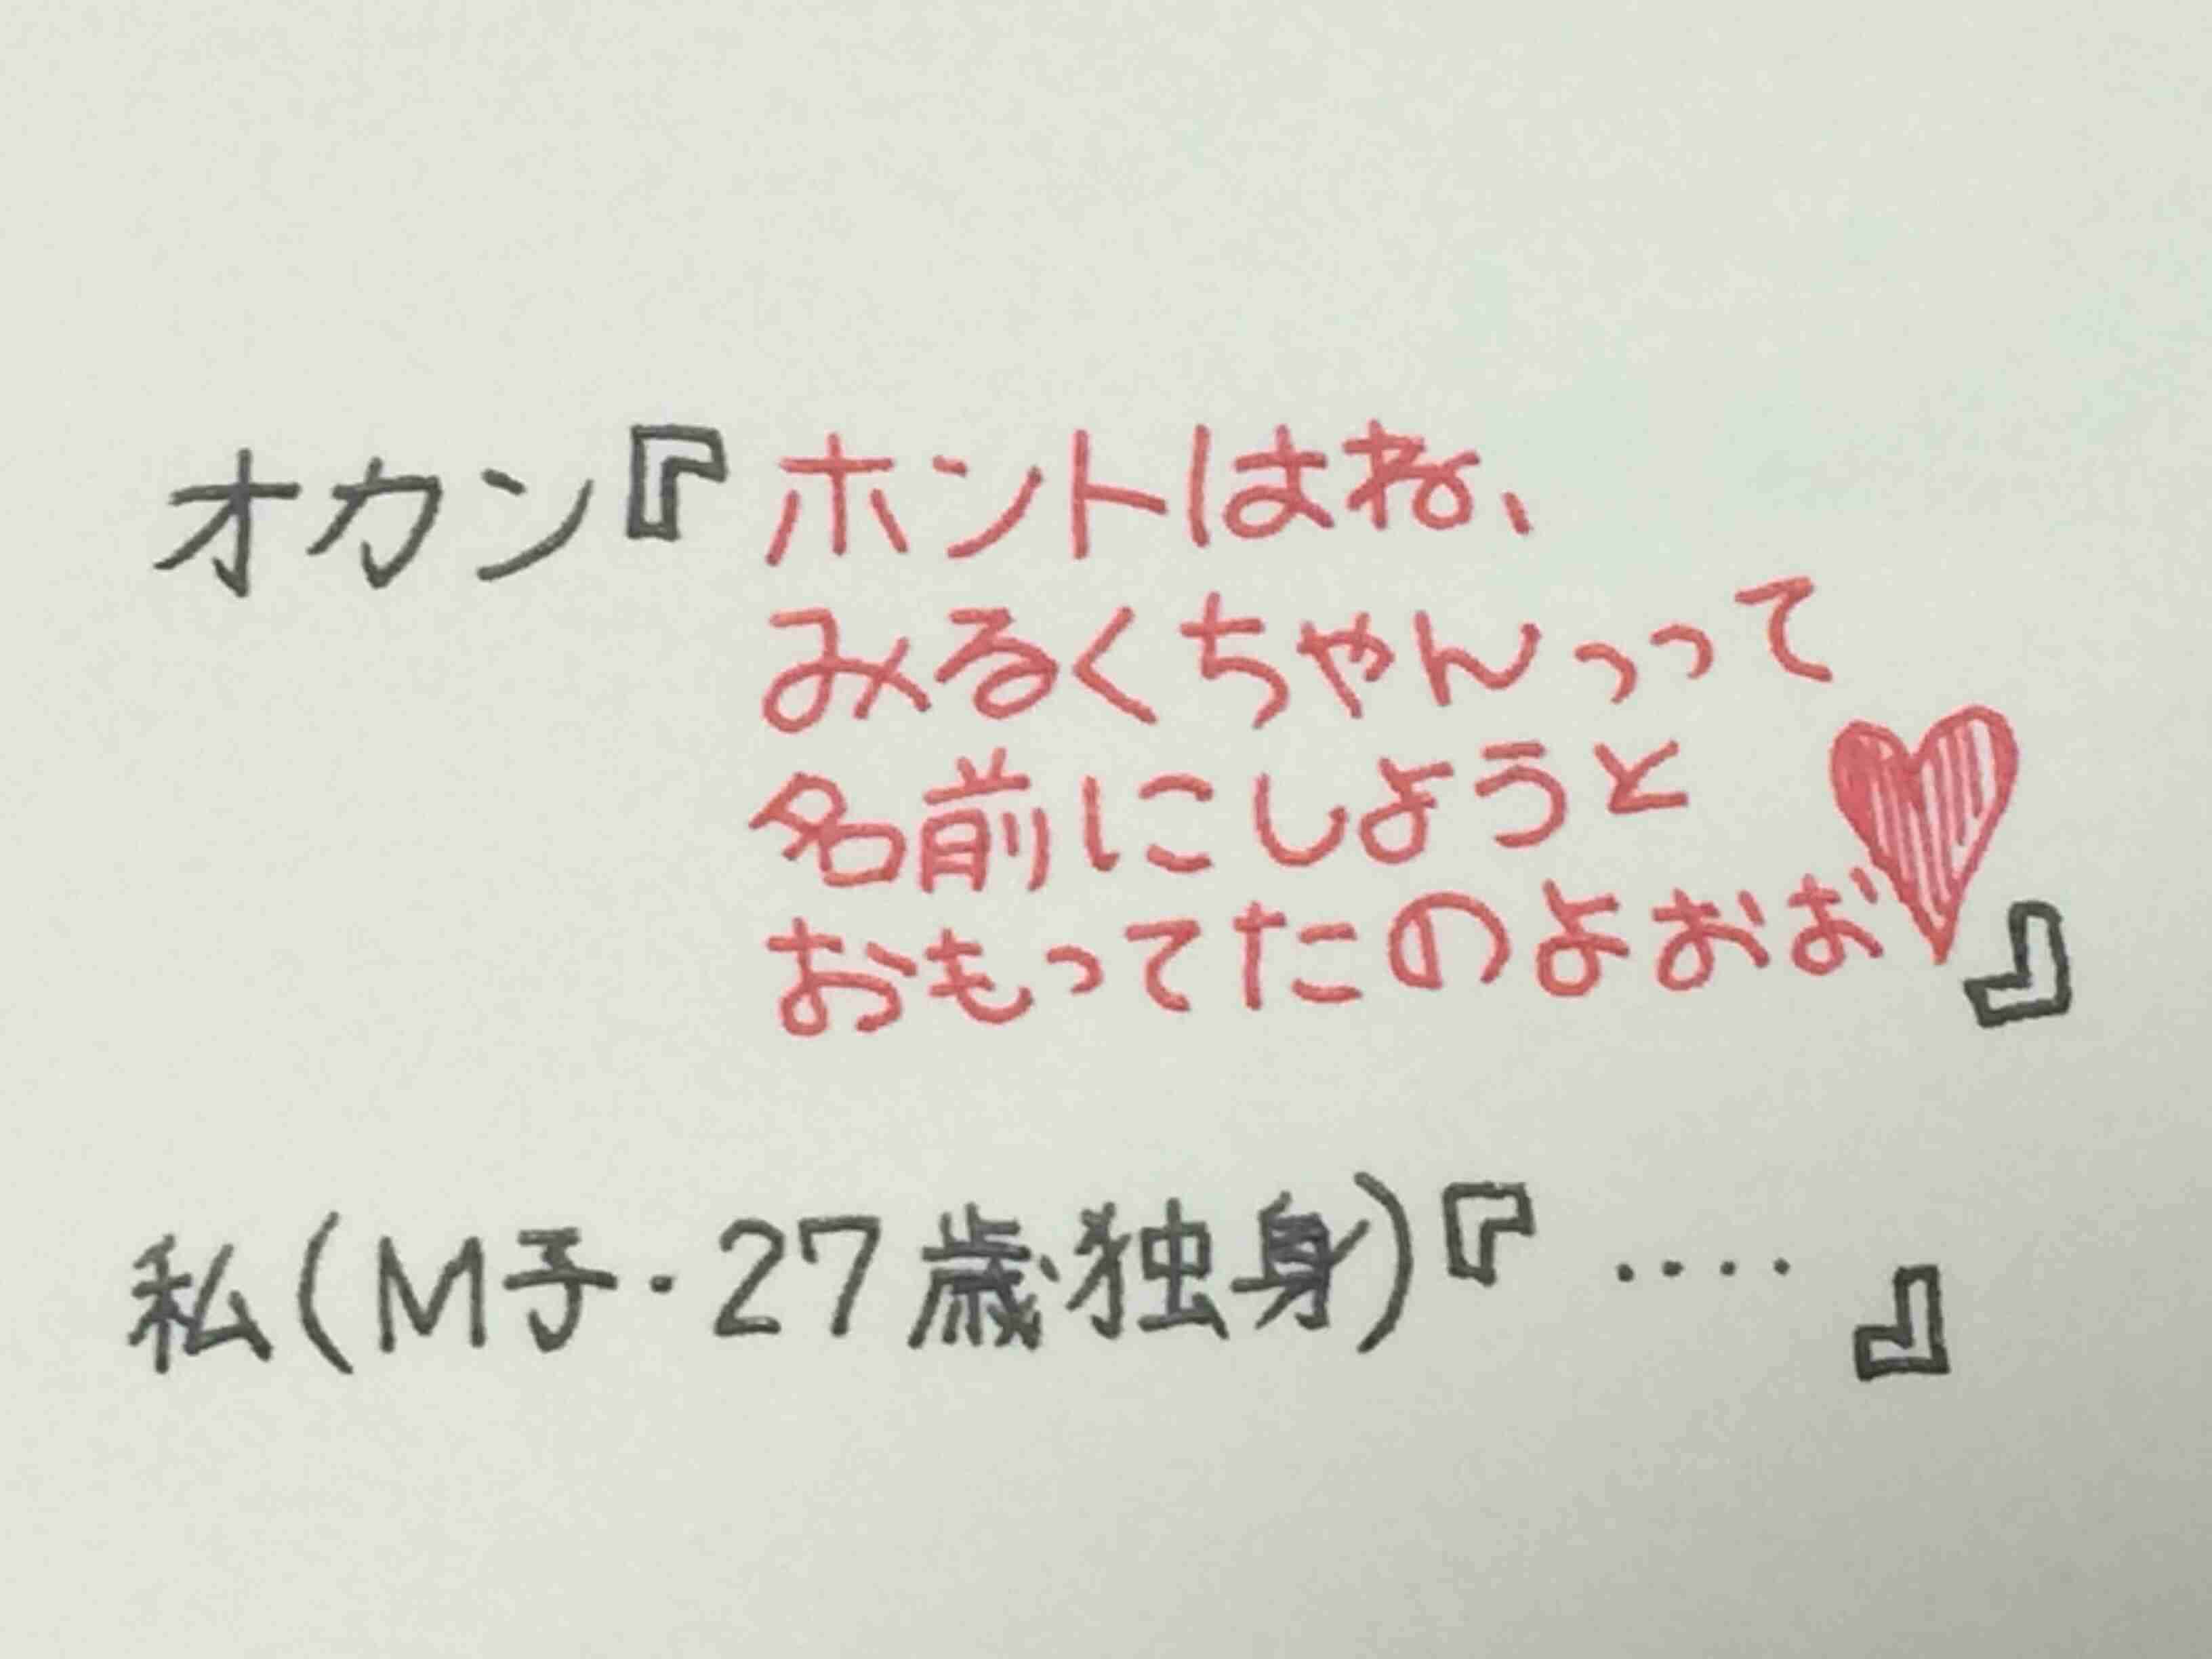 オカン『ホントはね、
みるくちゃんっって
名前にしようと
おもってたのよおぉ♥』
私(M子・27歳・独身)『‥‥』